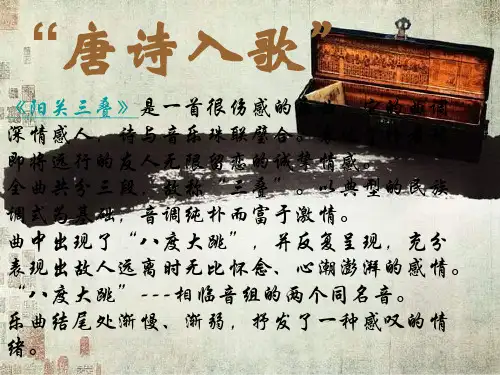 “唐诗入歌”
《阳关三叠》是一首很伤感的
深情感人，诗与音乐珠联璧合。
即将远行的友人无限留恋的诚挚情感。
全曲共分三段，故称“三叠”。以典型的民族
调式为基础，音调纯朴而富于激情。
曲中出现了“八度大跳”，并反复呈现，充分
表现出故人远离时无比怀念、心潮澎湃的感情。
“八度大跳”---相临音组的两个同名音。
乐曲结尾处渐慢、渐弱，抒发了一种感叹的情
绪。